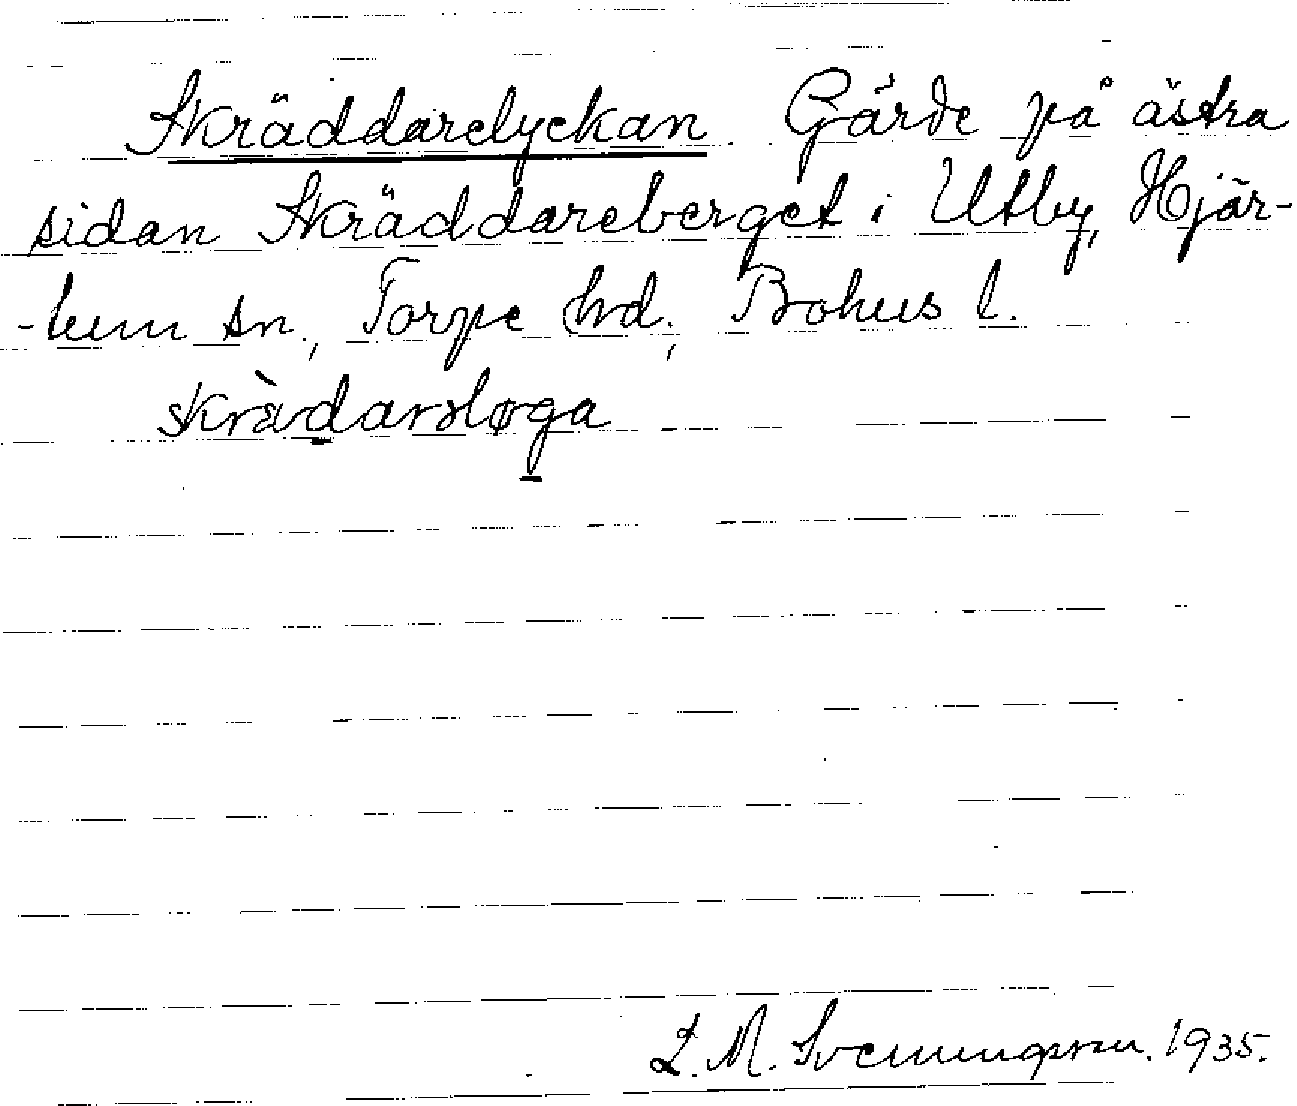 Skräddarelyckan. Gärde på östra
sidan Skräddareberget i Utby, Hjär-
-tum sn., Torpe hd., Bohus l.
skrädarsløga
L. M. Svenungsson. 1935.